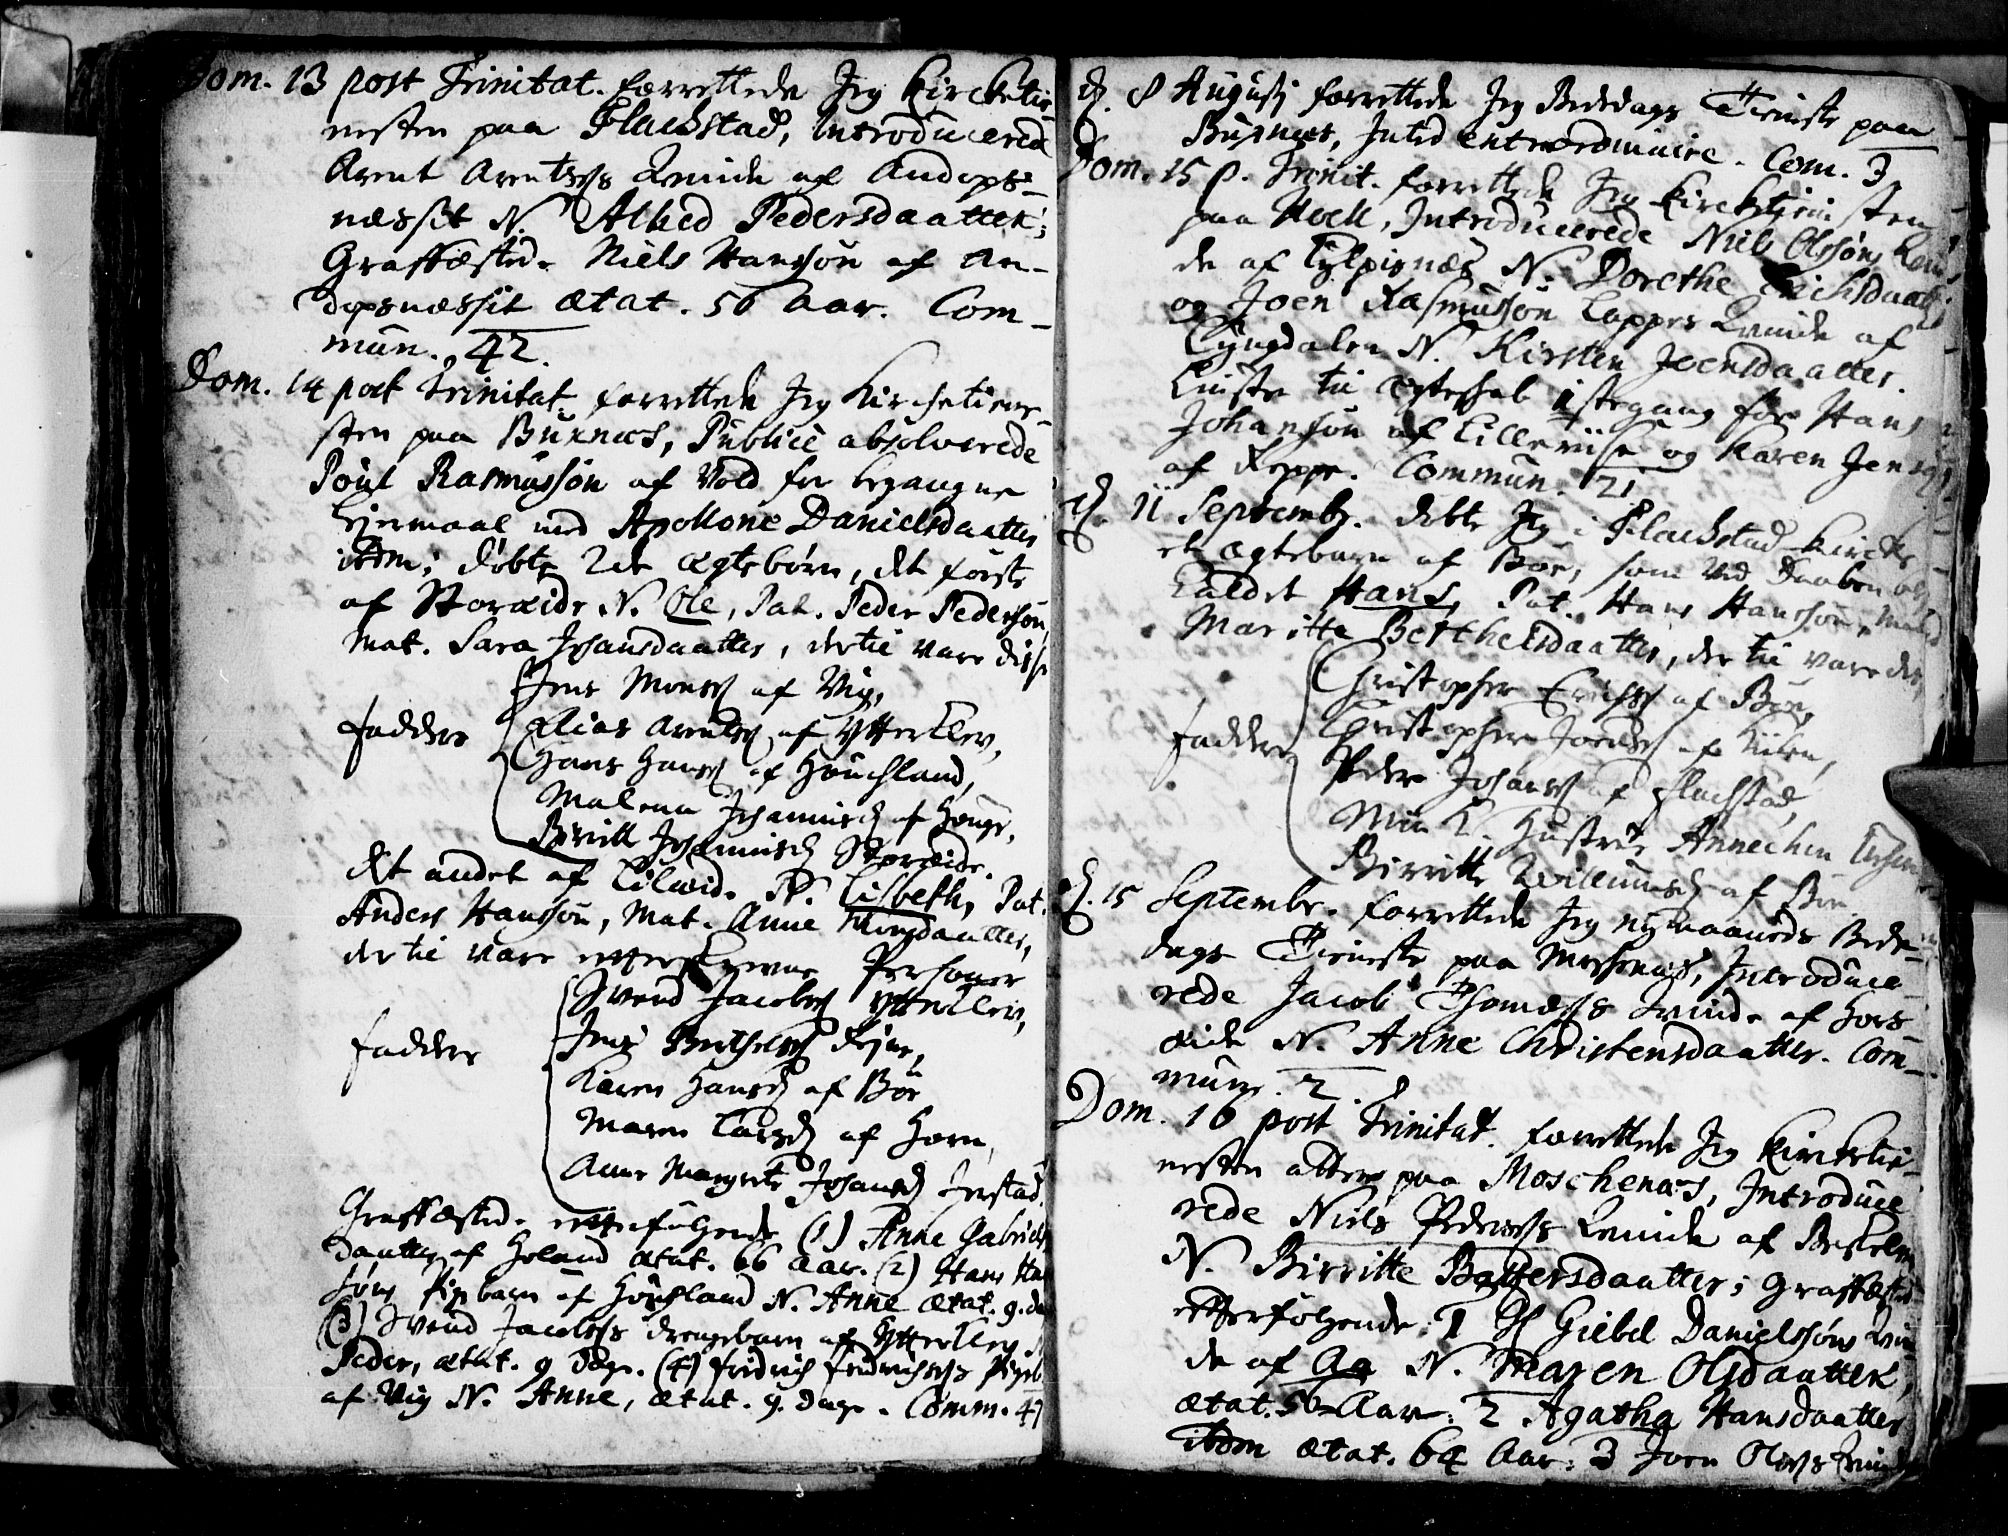 Dom. 13 post Trinitat. forrettede Jeg Kircketie-
nesten paa Flackstad, Introducerede
Arent Arentssøs Qvinde af Andops-
næsset N. Alhed Pedersdaatter;
Graffæsted. Niels Hanssøn af An-
dopsnæsset ætat. 56 Aar. Com-
mun. 42.
Dom. 14 post Trinitat. forrettede Jeg Kircketiene-
sten paa Buxnæs, Publice absolverede
Poul Rasmussøn af Vold for begangne
Leiermaal med Apollone Danielsdaatter
ibdm; døbte 2de ægtebørn, det første
af Storeide N. Ole, Pat. Peder Pederssøn,
Mat. Sara Johansdaatter, dertil vare disse
Jens Monss. af Vig,
Faddere Elias Arentss. af Ytterklev,
Hans Hanss. af Houchland,
Malena Johannisd. af Houge,
Birritt Johannisd. Storeide.
Det andet af Lilleeide N. Lisbeth, Pat.
Anders Hanssøn, Mat. Anne Mogsdaatter,
dertil vare efterskrevne Personer
Svend Jacobss. Ytterklev,
Faddere Jens Berthelss.
Karen Hansd. af Böe
Maren Larsd. af Horn,
Anne Margrete Johansd. Jerstad.
Graffæsted. efterfølgende (1) Anne Gabriels
daatter af Holand ætat. 66 Aar. (2) Hans Han
søns Pigebarn af Houchland N. Anne ætat. 9. da
(3) Svend Jacobssøs drengebarn af Ytterklev
Peder, ætat. 9 Dage. (4) Fridrich Fridrichssøs Pigeb
af Vig N. Anne, ætat. 9. dage. Comm. 47
d. 8 Augusti forrettede Jeg Bededags Tieneste paa
Buxnæs, Intet extraordinaire. Com. 3.
Dom. 15 p. Trinit. forrettede Jeg Kircketienesten
paa Hoell, Introducerede Niels Olssøns Qvin
de af N. Dorethe Erichsdaatter
og Joen Rasmussøn Lappes Qvinde af
Lyngdalen N. Kirsten Joensdaatter.
Liuste til Ægteskab 1ste gang for Hans
Johanssøn af og Karen Jens
af Reppe. Commun. 21
d. 11 Septembr. døbte Jeg i Flackstad Kircke
et ægtebarn af Böe, som ved Daaben blef
kaldet Hans, Pat. Hans Hanssøn, Mater
Maritte Berthelsdaatter, der til vare de
Christopher Erichss. af Böe,
Faddere Christopher Joenss. af Kilen,
Peder Johanss. af Flachstad,
Min K. Hustrue Annechen
Birritte Willumsd. af Böe
d. 15 Septembr. forrettede Jeg nymaaneds Bede-
dags Tieneste paa Moschenæs, Introduce-
rede Jacob Thomæssøs Qvinde af Hors
eide N. Anne Christensdaatter. Com-
mun. 2.
Dom. 16 post Trinitat. forrettede Jeg Kircketie-
nesten atter paa Moschenæs, Introduce
rede Niels Pederssøs Qvinde af
N. Birritte Baltzersdaatter; Graffæsted
efterfølgende: 1 Giebel Danielssøns Qvin
de af Aa N. Maren Olsdaatter,
ætat. 50 Aar. 2 Agatha Hansdaatter
ibdm ætat. 64 Aar: 3 Joen Olssøs Qvinde